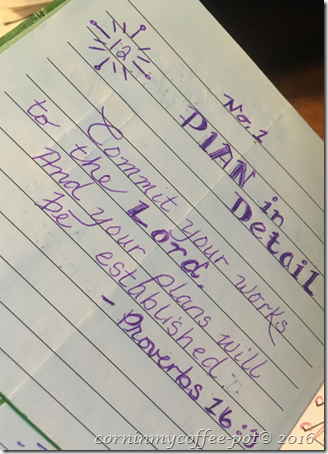 12
No. 1
PLAN in
Detail
Commit your works
to the Lord.
And your plans will
be established.
- Proverbs 16:3
corninmycoffee-pot© 2016